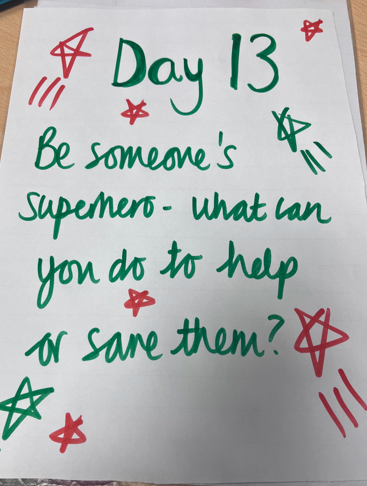 Day 13
Be someone's
superhero - what can
you do to help
or save them?